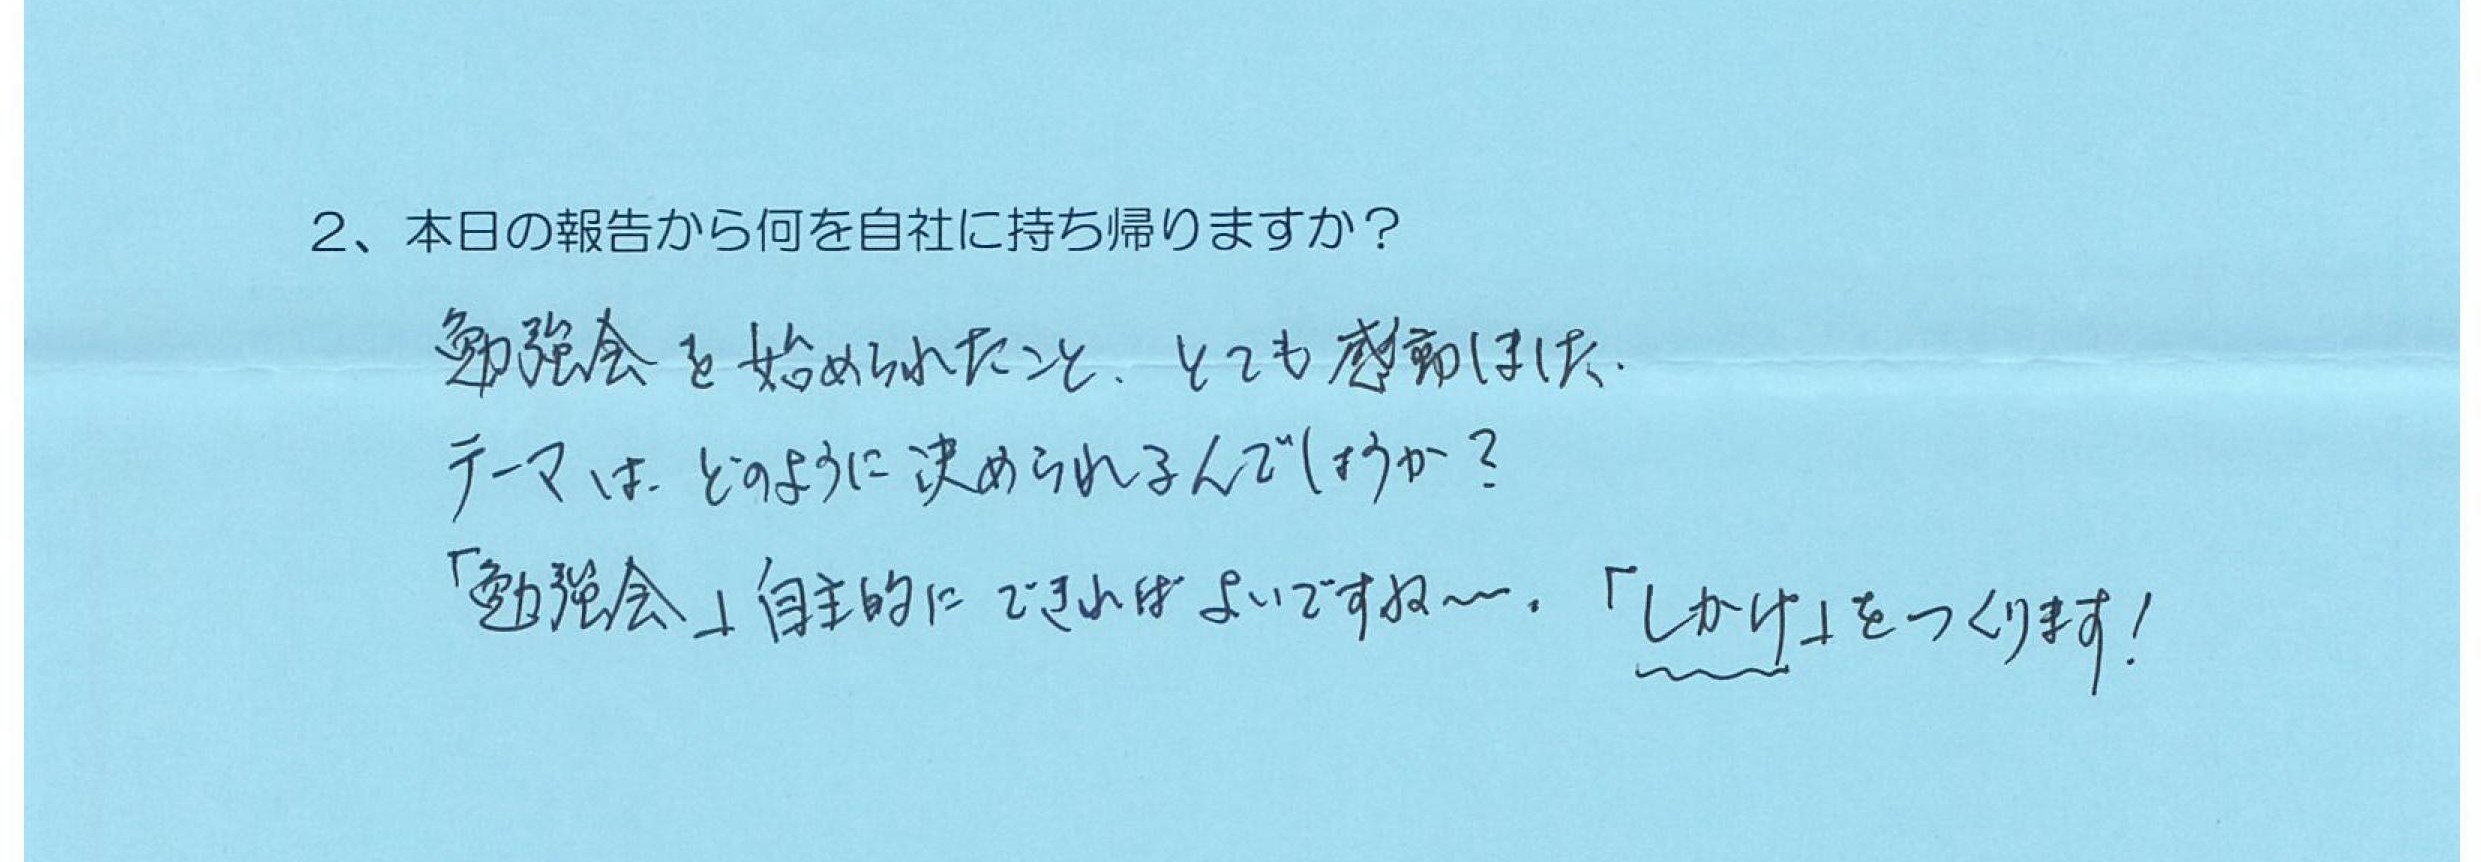 2、本日の報告から何を自社に持ち帰りますか？
勉強会を始められたこと、とても感動しました.
テーマは、どのように決められるんでしょうか？
「勉強会」自主的にできればよいですね〜。「しかけ」をつくります！